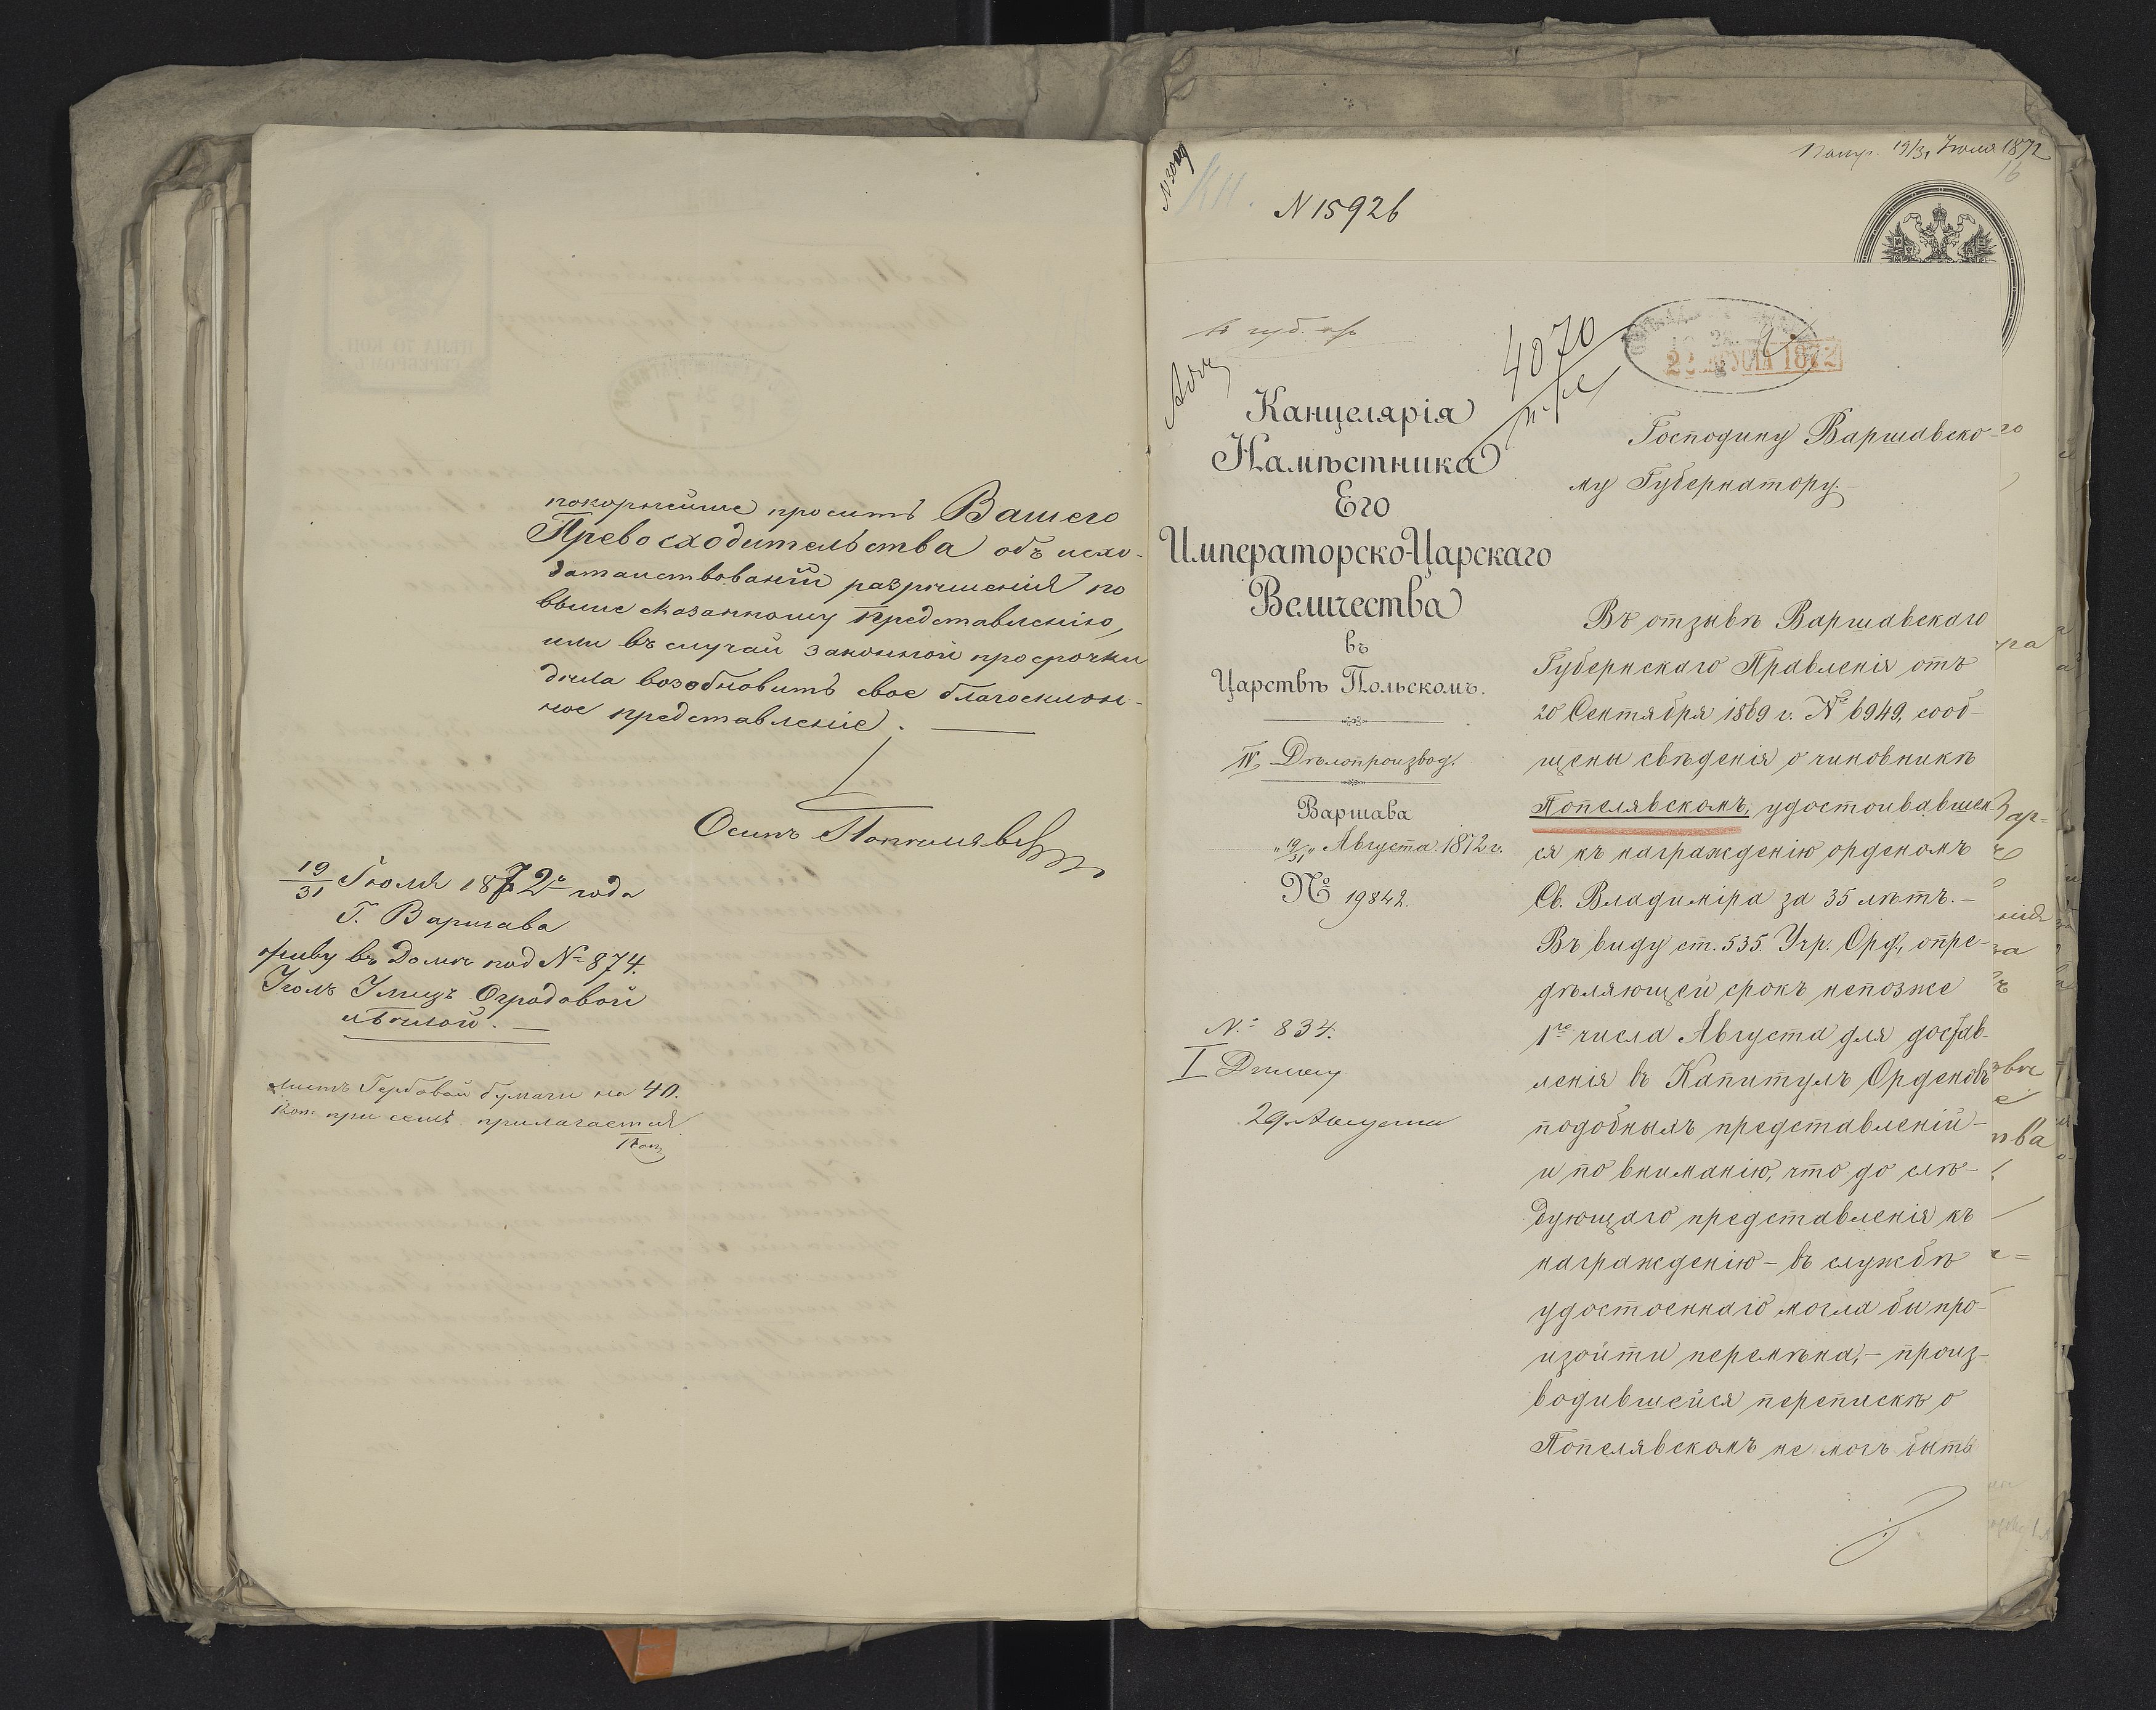 покорнейше проситъ Вашего
Превосходительства объ исхо-
датайствованіи разрѣшенія по
выше сказанному представленію,
или въ случай законной просрочки
дѣла возобновить свое благосклон-
ное представленіе.
Осипъ Попелявскій
19/31 Іюля 1872го года
Г. Варшава
живу въ Домѣ под № 874.
Уголъ Улицъ Огродовой
и Бѣлой.
листъ Гербовой бумаги на 40.
Коп. при семъ прилагается
Поп
Іюля 1872
16
КН.
N 15926
4070
22 АВГУСТА 1872
Канцелярія
Намѣстника
Его
Императорско-Царскаго
Величества
въ
Царствѣ Польскомъ.
IV Дѣлопроизвод.
Варшава
„19/31„ Августа 1872 г.
№ 19842.
№ 834.
I Дѣлу
29 Августа
Господину Варшавско-
му Губернатору.
Въ отзывѣ Варшавскаго
Губернскаго Правленія отъ
20 Сентября 1869 г. № 6949, сооб-
щены свѣденія о чиновникѣ
Попелявскомъ, удостоивавшем-
ся къ награжденію орденомъ
Св. Владиміра за 35 лѣтъ.-
Въ виду ст. 535. Учр. Орд., опре-
дѣляющей срокъ непозже
1го числа Августа для достав-
ленія въ Капитулъ Орденовъ
подобныхъ представленій-
и по вниманію, что до слѣ-
дующаго представленія къ
награжденію - въ службѣ
удостоеннаго могла бы про-
изойти перемѣна,- произ-
водившейся перепискѣ о
Попелявскомъ не могъ быть